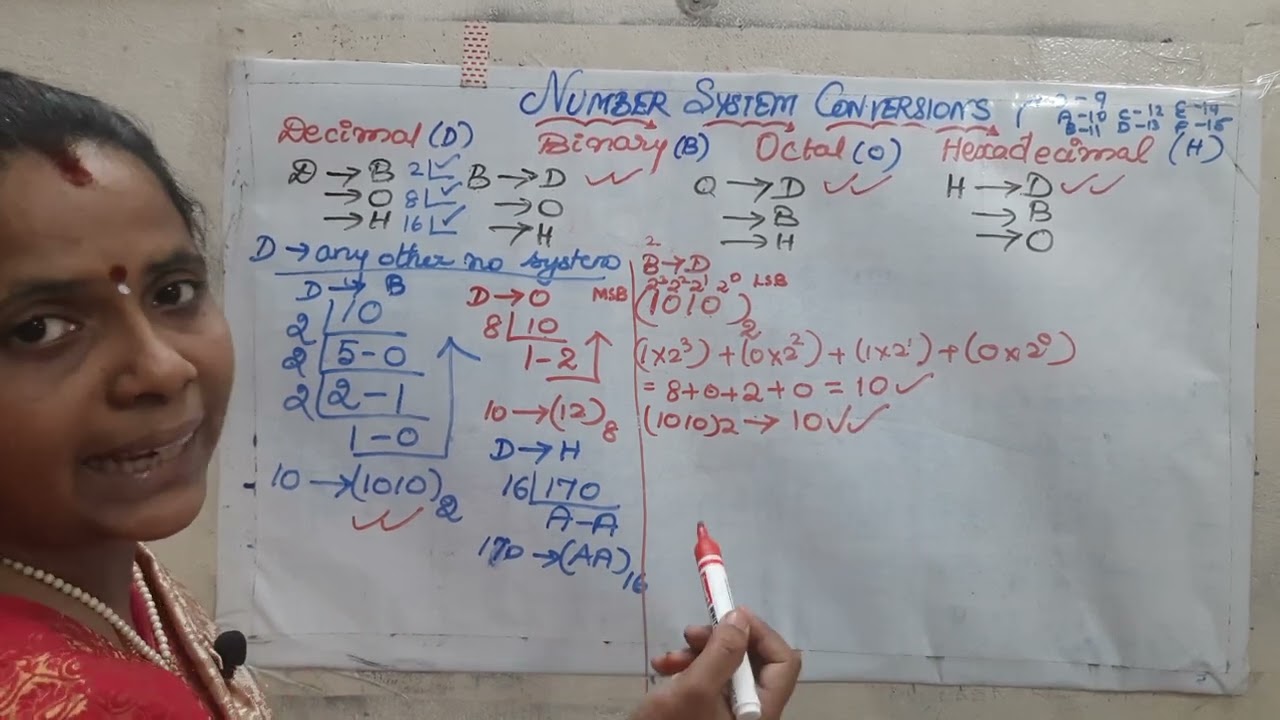 NUMBER SYSTEM CONVERSIONS
- 9
A-10 C-12 E-14
B-11 D-13 F-15
Decimal (D) Binary (B) Octal (O) Hexadecimal (H)
D → B 2
→ O 8
→ H 16
B → D
→ O
→ H
O → D
→ B
→ H
H → D
→ B
→ O
D → any other no system
D → B
2 10
2 5-0
2 2-1
1-0
10 → (1010)2
D → O
8 10
1-2
10 → (12)8
D → H
16 170
A-A
170 → (AA)16
2
B → D
2³ 2² 2¹ 2⁰ LSB
MSB (1010)2
(1x2³) + (0x2²) + (1x2¹) + (0x2⁰)
= 8+0+2+0 = 10
(1010)2 → 10